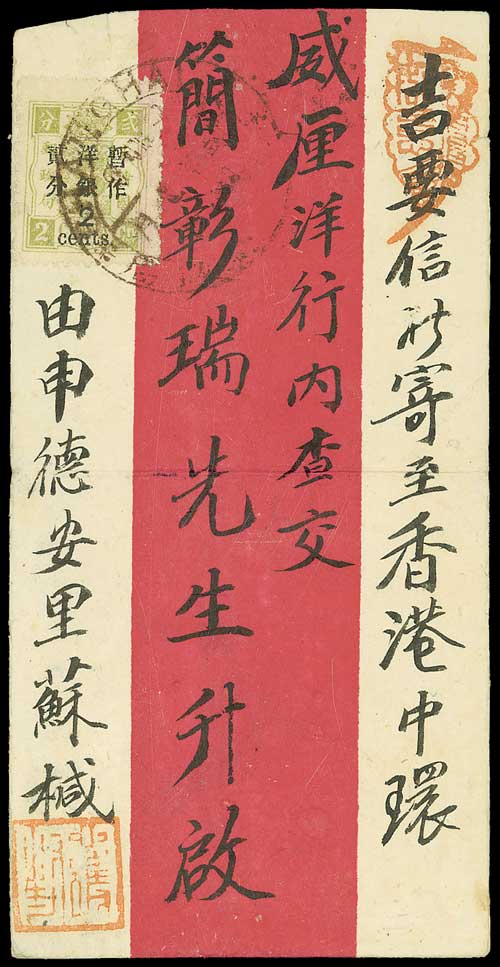 吉要信所寄至香港中環
威厘洋行內查交
簡彰瑞先生升啟
由申德安里蘇椷
暫作
洋銀2
貳分
cents.
分
貳
2